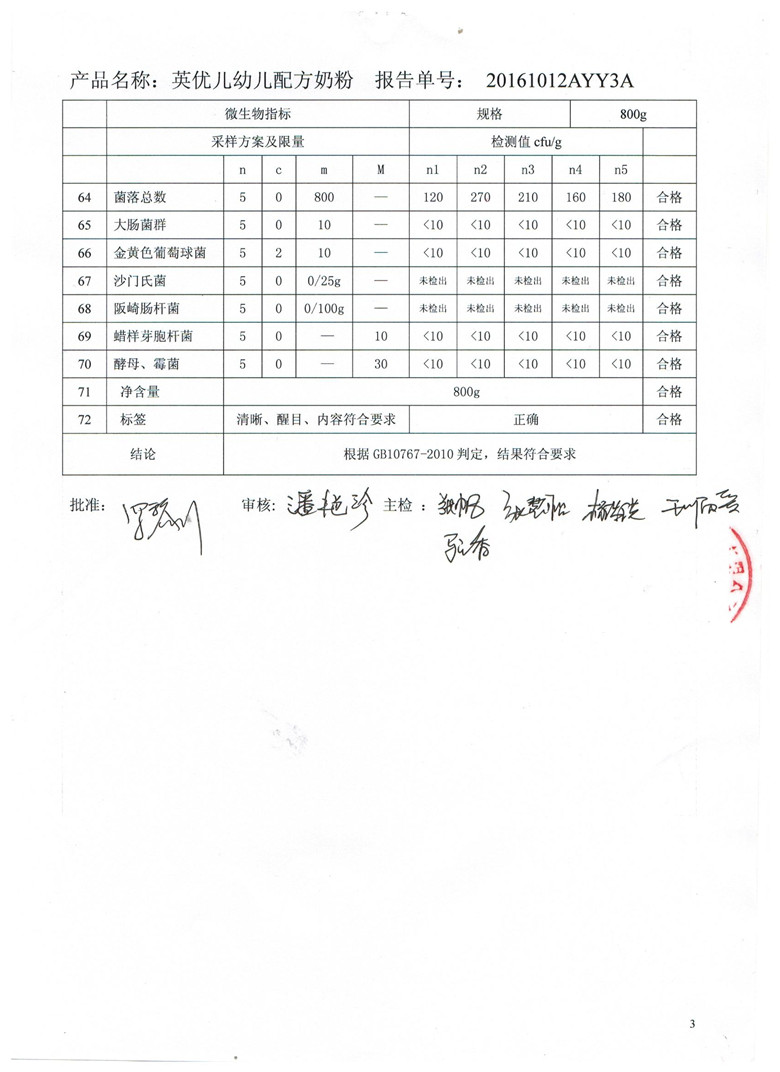 产品名称：英优儿幼儿配方奶粉 报告单号： 20161012AYY3A
微生物指标 规格 800g
采样方案及限量 检测值 cfu/g
n c m M n1 n2 n3 n4 n5
64 菌落总数 5 0 800 — 120 270 210 160 180 合格
65 大肠菌群 5 0 10 — <10 <10 <10 <10 <10 合格
66 金黄色葡萄球菌 5 2 10 — <10 <10 <10 <10 <10 合格
67 沙门氏菌 5 0 0/25g — 未检出 未检出 未检出 未检出 未检出 合格
68 阪崎肠杆菌 5 0 0/100g — 未检出 未检出 未检出 未检出 未检出 合格
69 蜡样芽胞杆菌 5 0 — 10 <10 <10 <10 <10 <10 合格
70 酵母、霉菌 5 0 — 30 <10 <10 <10 <10 <10 合格
71 净含量 800g 合格
72 标签 清晰、醒目、内容符合要求 正确 合格
结论 根据 GB10767-2010 判定，结果符合要求
批准： 审核: 潘艳珍 主检 ：
3